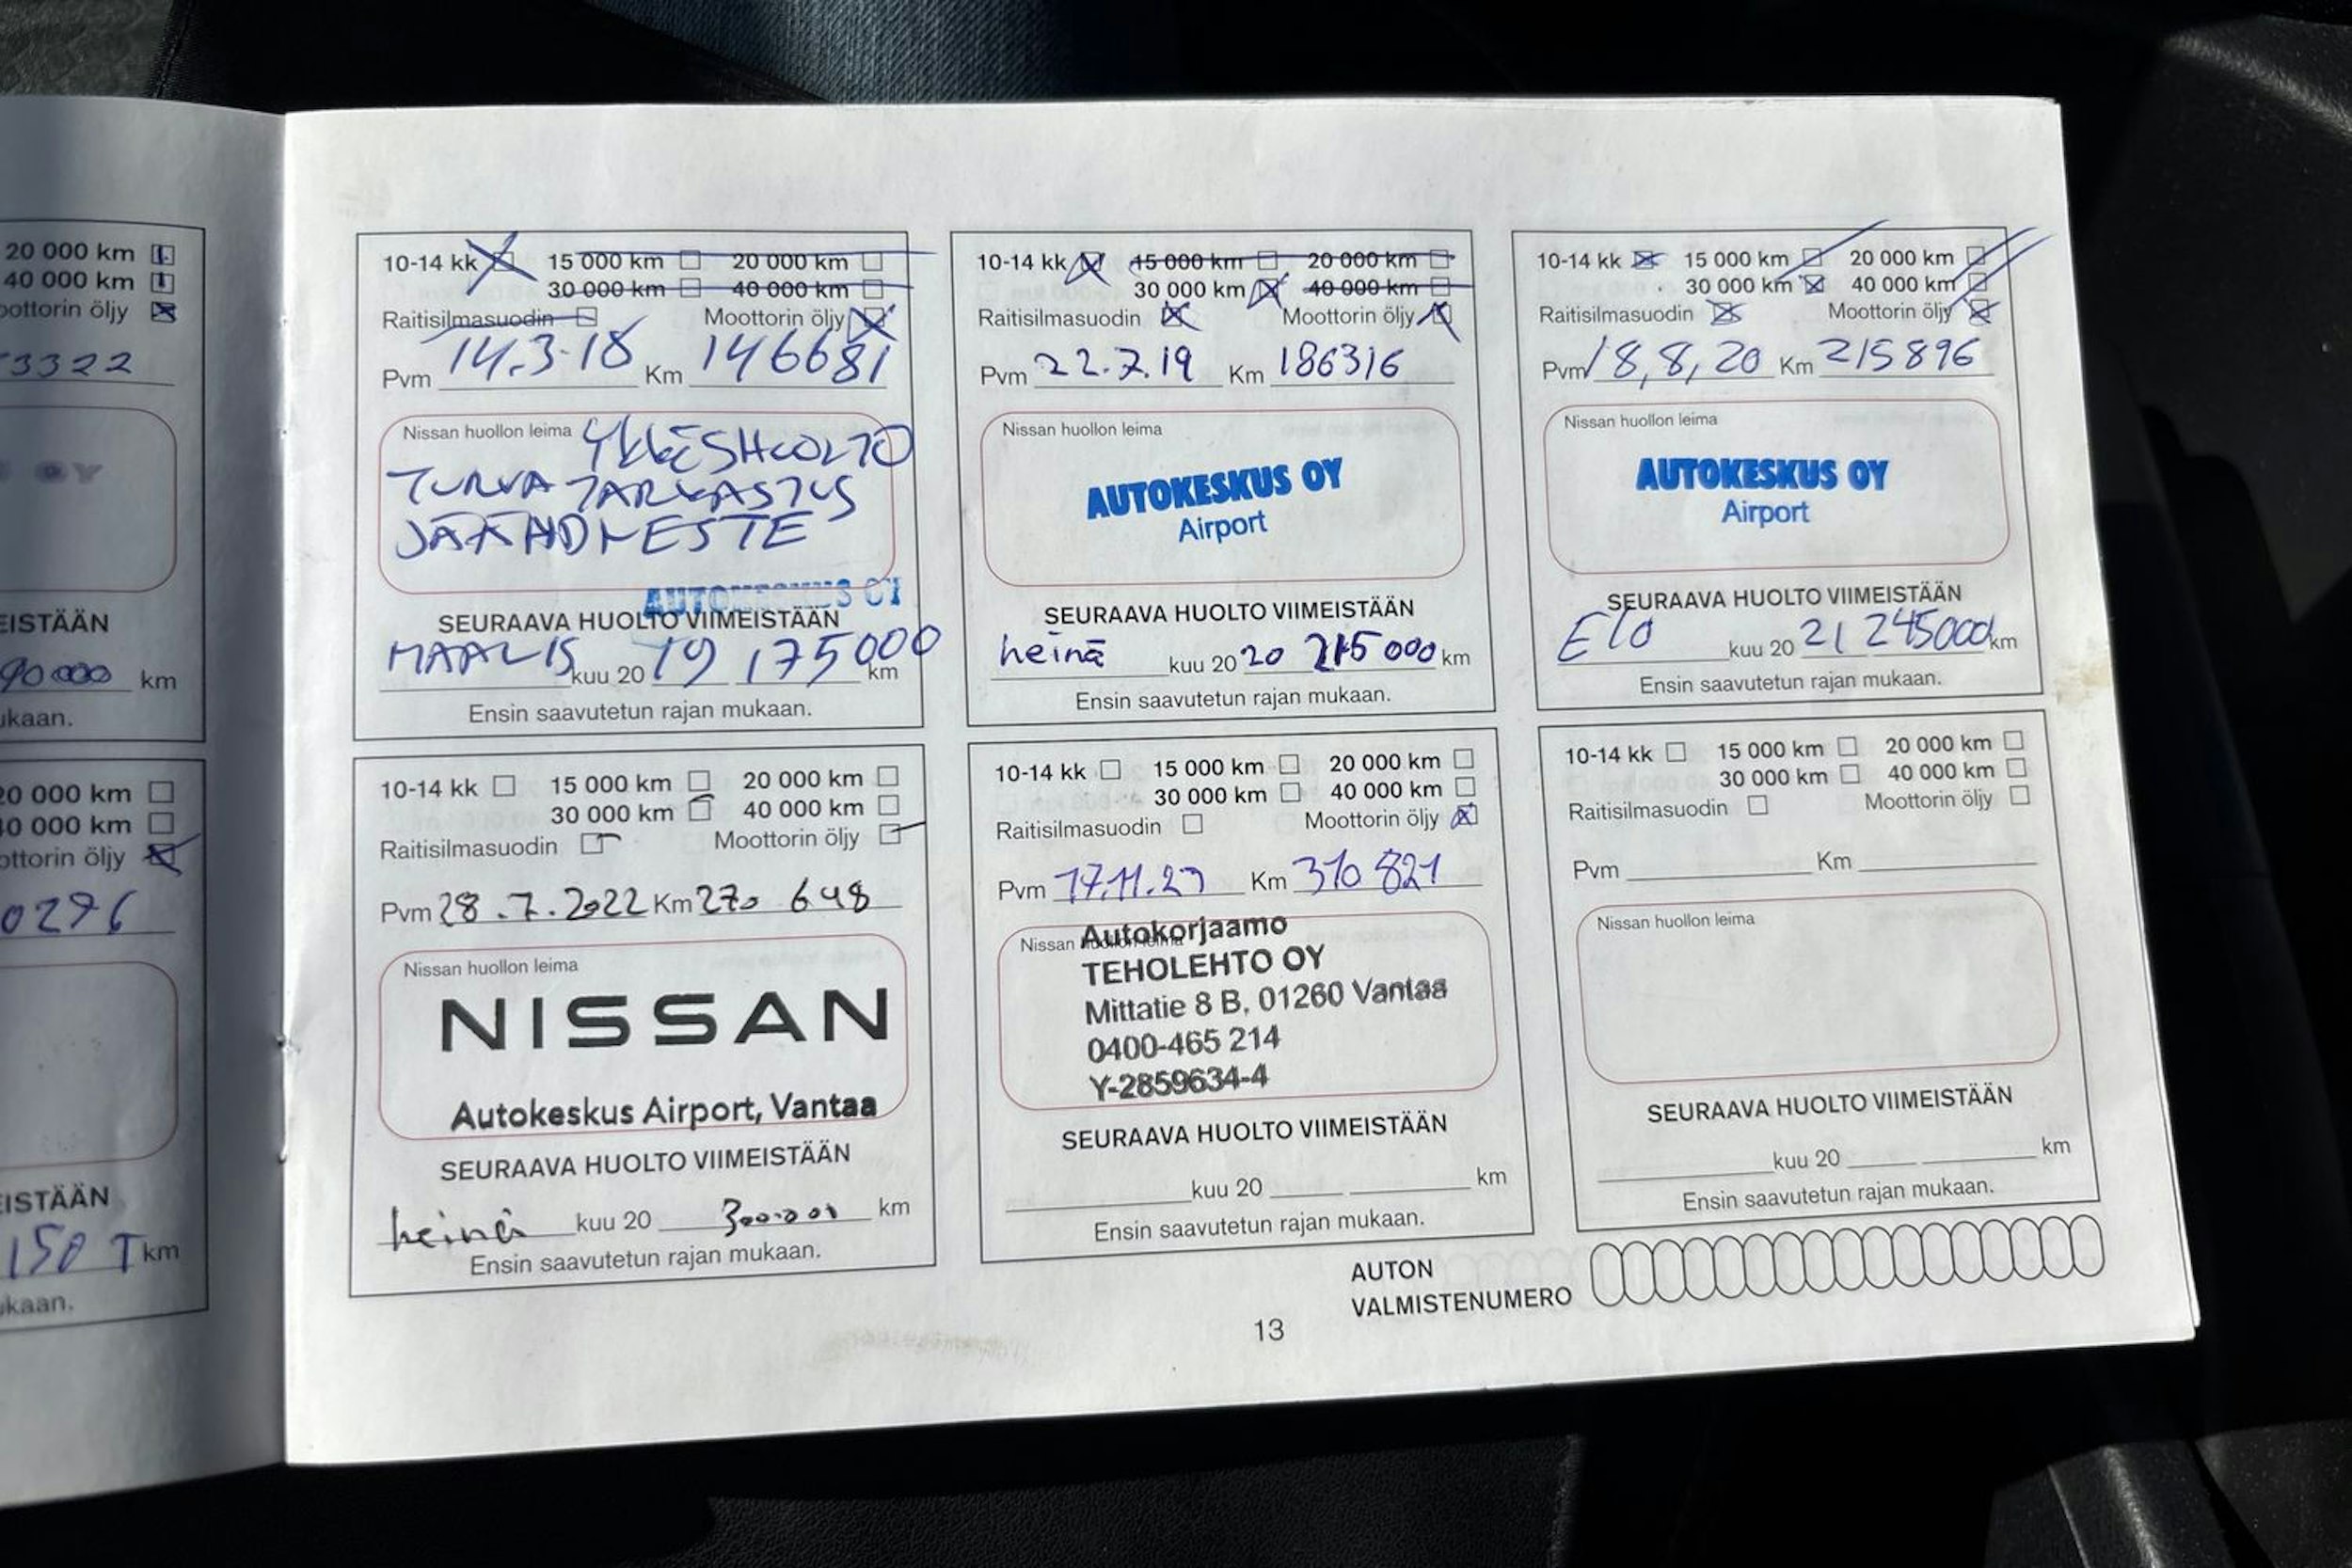 20 000 km
40 000 km
oottorin öljy
3322
OY
EISTÄÄN
90000 km
ukaan.
20 000 km
40 000 km
ottorin öljy
0296
EISTÄÄN
150 T km
ukaan.
10-14 kk 15 000 km 20 000 km
30 000 km 40 000 km
Raitisilmasuodin Moottorin öljy
Pvm 14.3.18 Km 146681
Nissan huollon leima YLLÄSHUOLTO
TURVA TARKASTUS
JÄÄHDNESTE
AUTOKESKUS OY
SEURAAVA HUOLTO VIIMEISTÄÄN
MAALIS kuu 20 19 175000 km
Ensin saavutetun rajan mukaan.
10-14 kk 15 000 km 20 000 km
30 000 km 40 000 km
Raitisilmasuodin Moottorin öljy
Pvm 22.7.19 Km 186316
Nissan huollon leima
AUTOKESKUS OY
Airport
SEURAAVA HUOLTO VIIMEISTÄÄN
heinä kuu 20 20 215000 km
Ensin saavutetun rajan mukaan.
10-14 kk 15 000 km 20 000 km
30 000 km 40 000 km
Raitisilmasuodin Moottorin öljy
Pvm 18,8,20 Km 215896
Nissan huollon leima
AUTOKESKUS OY
Airport
SEURAAVA HUOLTO VIIMEISTÄÄN
Elo kuu 20 21 245000 km
Ensin saavutetun rajan mukaan.
10-14 kk 15 000 km 20 000 km
30 000 km 40 000 km
Raitisilmasuodin Moottorin öljy
Pvm 28.7.2022 Km 270 648
Nissan huollon leima
NISSAN
Autokeskus Airport, Vantaa
SEURAAVA HUOLTO VIIMEISTÄÄN
heinä kuu 20 300.000 km
Ensin saavutetun rajan mukaan.
10-14 kk 15 000 km 20 000 km
30 000 km 40 000 km
Raitisilmasuodin Moottorin öljy
Pvm 17.11.23 Km 310 821
Nissan huollon leima
Autokorjaamo
TEHOLEHTO OY
Mittatie 8 B, 01260 Vantaa
0400-465 214
Y-2859634-4
SEURAAVA HUOLTO VIIMEISTÄÄN
kuu 20 km
Ensin saavutetun rajan mukaan.
10-14 kk 15 000 km 20 000 km
30 000 km 40 000 km
Raitisilmasuodin Moottorin öljy
Pvm Km
Nissan huollon leima
SEURAAVA HUOLTO VIIMEISTÄÄN
kuu 20 km
Ensin saavutetun rajan mukaan.
AUTON
VALMISTENUMERO
13